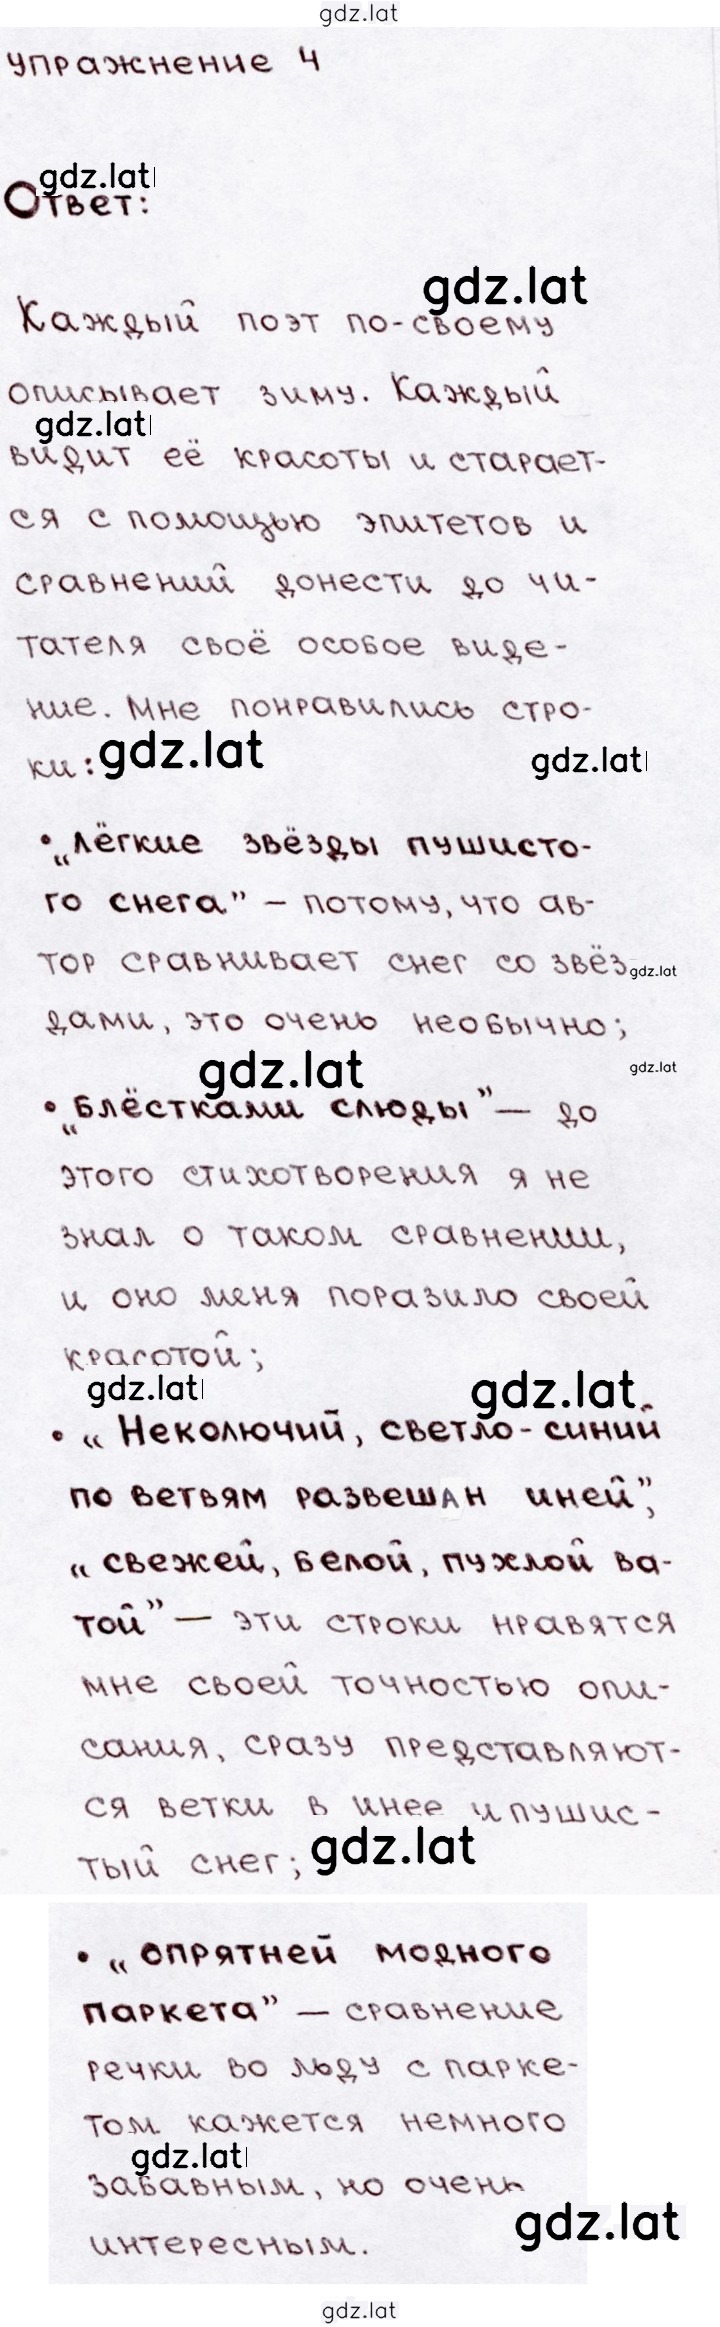 gdz.lat
упражнение 4
gdz.lat
Ответ:
gdz.lat
Каждый поэт по-своему
описывает зиму. Каждый
gdz.lat
видит её красоты и старает-
ся с помощью эпитетов и
сравнений донести до чи-
тателя своё особое виде-
ние. Мне понравились стро-
ки:
gdz.lat
gdz.lat
• „Лёгкие звёзды пушисто-
го снега” – потому, что ав-
тор сравнивает снег со звёз
gdz.lat
дами, это очень необычно;
gdz.lat
gdz.lat
• „Блёстками слюды” — до
этого стихотворения я не
знал о таком сравнении,
и оно меня поразило своей
красотой;
gdz.lat
gdz.lat
• „Неколючий, светло-синий
по ветвям развешан иней”,
„свежей, белой, пухлой ва-
той” — эти строки нравятся
мне своей точностью опи-
сания, сразу представляют-
ся ветки в инее и пушис-
тый снег;
gdz.lat
• „опрятней модного
паркета” — сравнение
речки во льду с парке-
том кажется немного
gdz.lat
забавным, но очень
gdz.lat
интересным.
gdz.lat